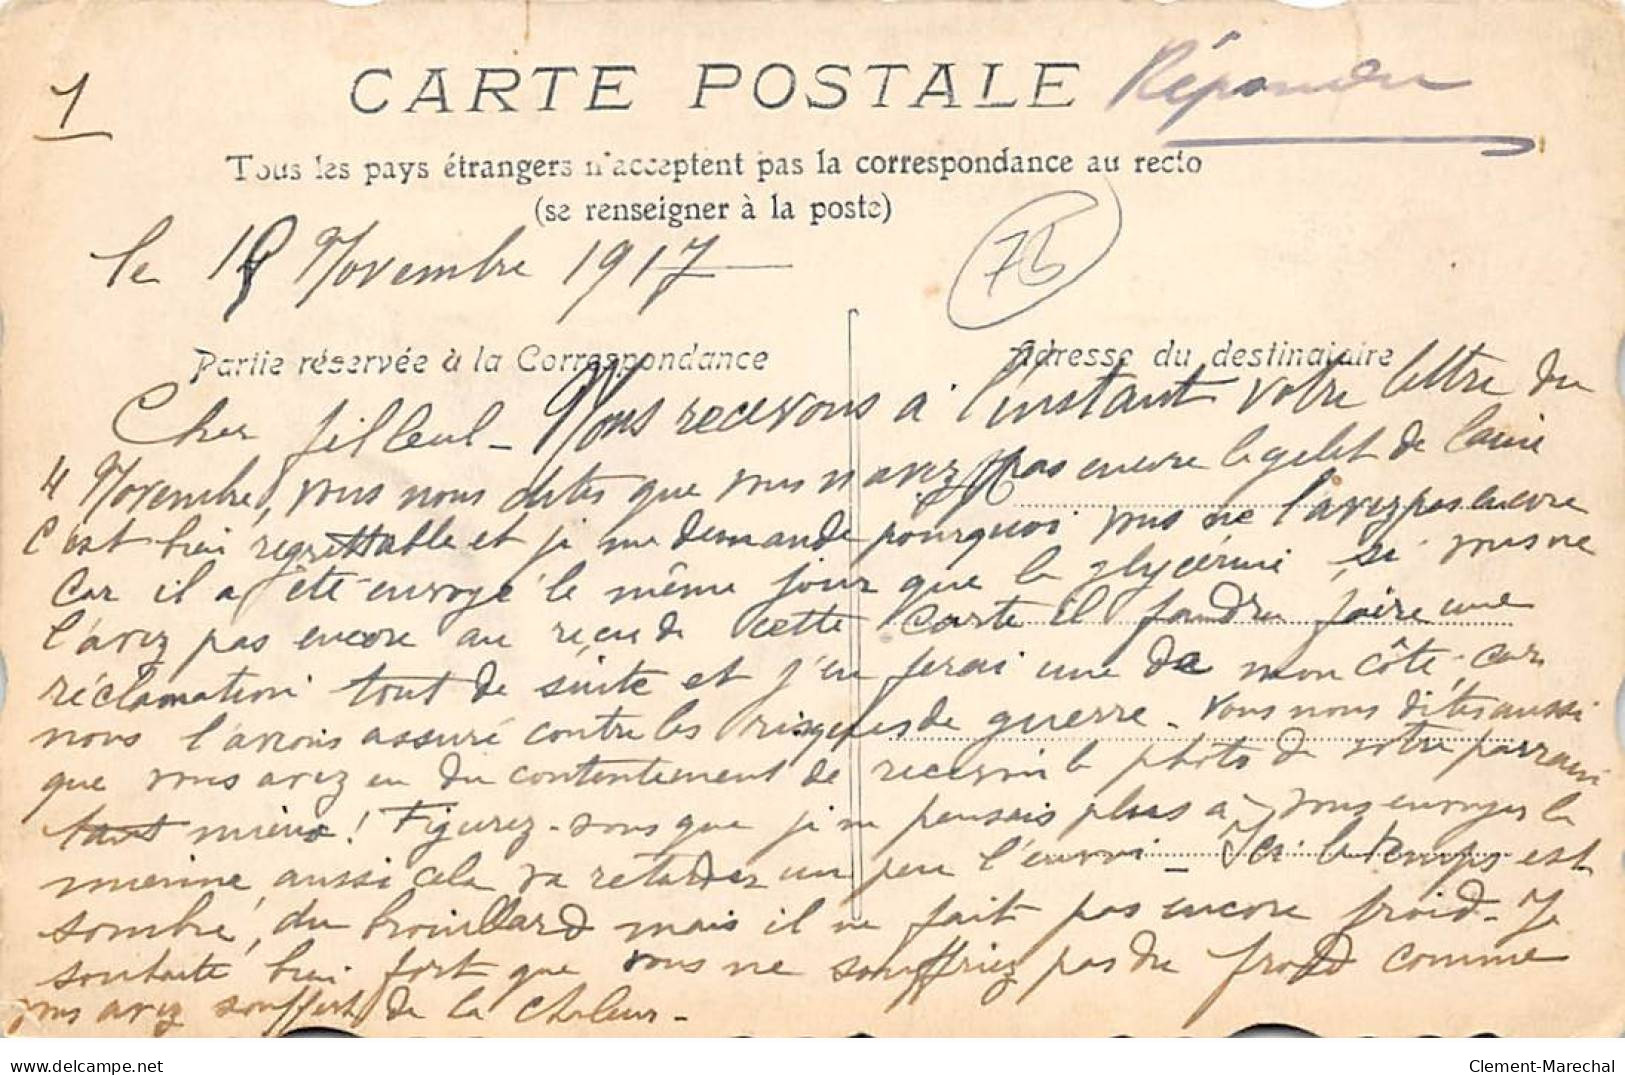 1
CARTE POSTALE Répondu
Tous les pays étrangers n'acceptent pas la correspondance au recto
(se renseigner à la poste)
le Novembre 1917
75
Partie réservée à la Correspondance
Adresse du destinataire
Cher filleul - Nous recevons à l'instant votre lettre du
4 Novembre, vous nous dites que vous n'avez pas encore le gilet de laine
C'est bien regrettable et je me demande pourquoi vous ne l'avez pas encore
Car il a été envoyé le même jour que la glycérine, si vous ne
l'avez pas encore au reçu de cette carte il faudra faire une
réclamation tout de suite et j'en ferai une de mon côté, car
nous l'avions assuré contre les risques de guerre - Vous nous dites aussi
que vous avez eu du contentement de recevoir la photo de votre parrain
tant mieux! Figurez-vous que je ne pensais plus à vous envoyer la
mienne, aussi cela va retarder un peu l'envoi - Ici le temps est
sombre, du brouillard mais il ne fait pas encore froid - Je
souhaite bien fort que vous ne souffriez pas du froid comme
vous avez souffert de la chaleur -
delcampe.net
Clement-Marechal